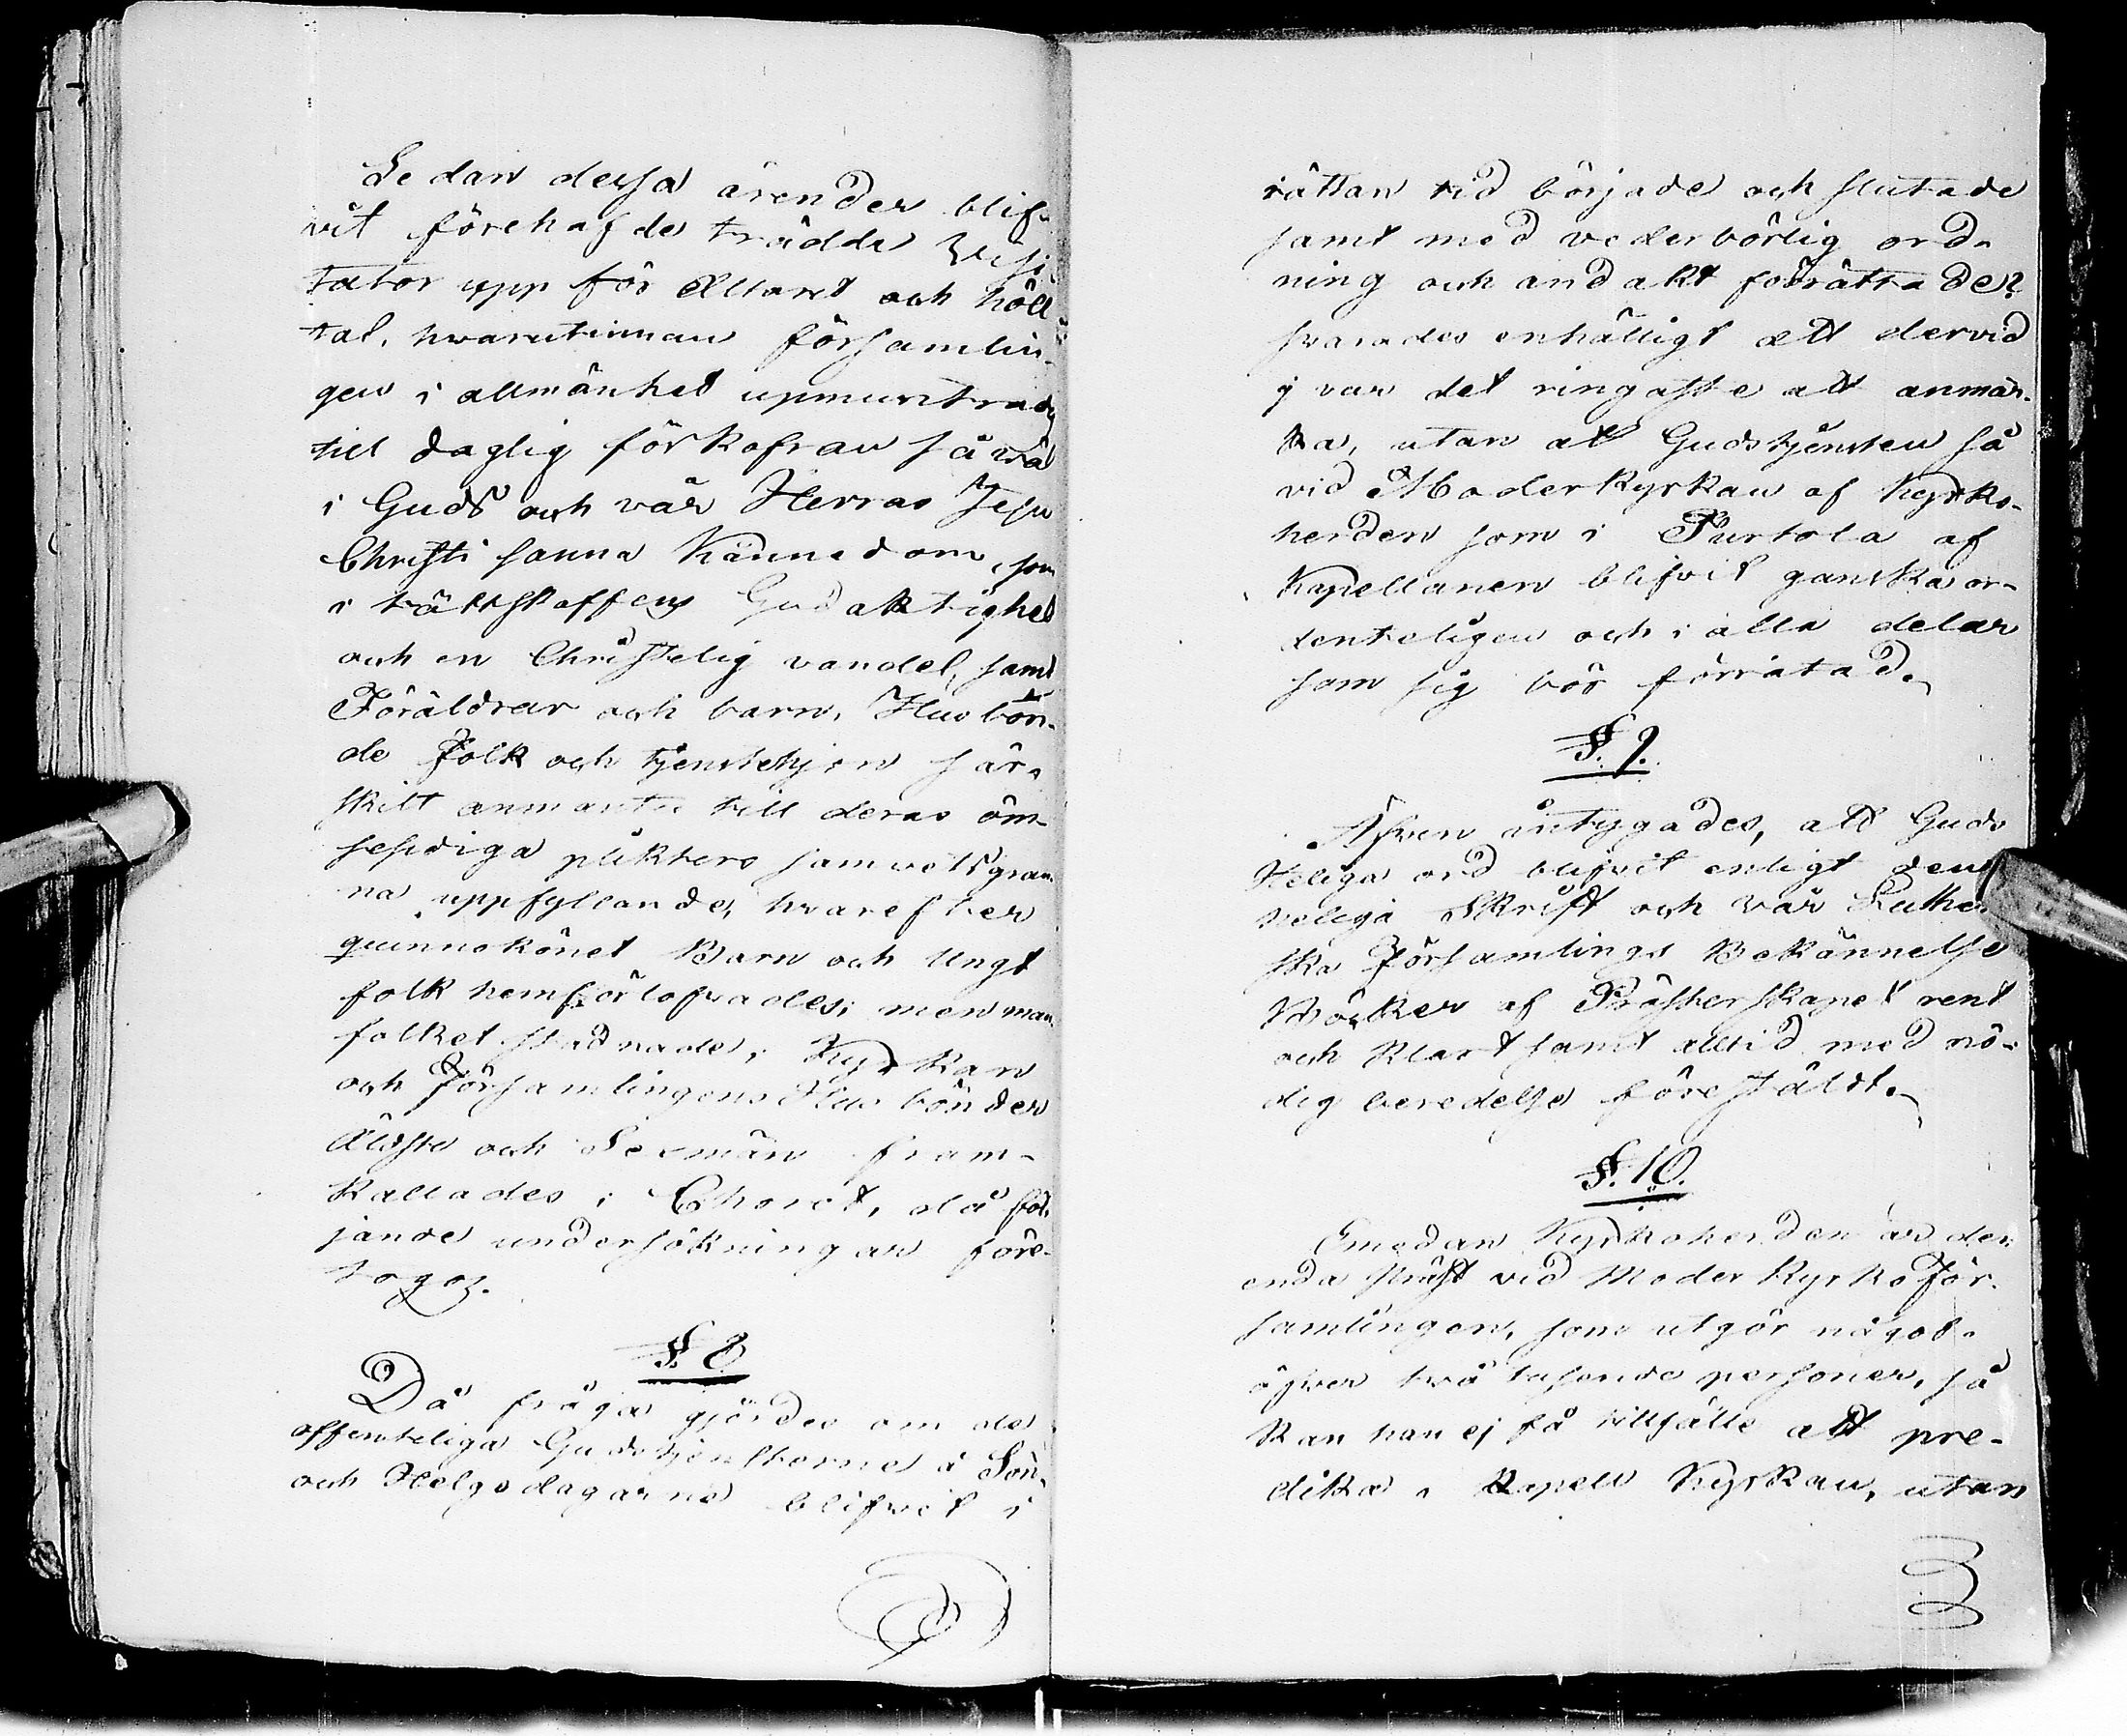 Sedan dessa ärender blif-
vit förehafde trädde Visi-
tator upp för Altaret och höll
tal, hvarutinnan församlin-
gen i allmänhet upmuntrades
till daglig förkofran så väl
i Guds och vår Herras Jesu
Christi sanna kännedom, som
i rättskaffens Gudaktighet
och en Christelig vandel, samt
Föräldrar och barn, Husbön-
de folk och tjenstehjon sär-
skilt anmante till deras öm-
sesidiga plikters samvetsgran-
na uppfyllande, hvarefter
quinnokönet Barn och Ungt
folk hemförlofvades; men man-
folket stadnade i Kyrkan
och Församlingens Husbönder
Äldste och Sexmän fram-
kallades i Choret, då föl-
jande undersökningar före-
togos.
§. 8
Då fråga gjordes om de
offenteliga Gudstjensterne å Sön-
och Helgedagarne blifvit i
rättan tid började och slutade
samt med vederbörlig ord-
ning och andakt förrättade?
svarades enhälligt att dervid
ej var det ringaste att anmär-
ka, utan att Gudstjensten så
vid Moderkyrkan af Kyrko-
herden som i Purtola af
Kapellanen blifvit ganska or-
denteligen och i alla delar
som sig bör förrätad.
§. 9.
Äfven intygades, att Guds
Heliga ord blifvit enligt den
heliga Skrift och vår Luther
ska Församlings Bekännelse
Böcker af Prästerskapet rent
och klart samt alltid med nö-
dig beredelse föreställt.
§. 10.
Emedan Kyrkoherden är den
enda präst vid Moder Kyrko För-
samlingen, som utgör något
öfver två tusende personer, så
kan han ej få tillfälle att pre-
dika i Kapell Kyrkan, utan